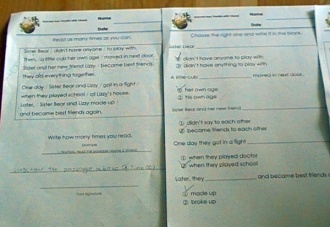 Name
Date
Read as many times as you can.
Sister Bear / didn't have anyone / to play with.
Then, / a little cub her own age / moved in next door.
Sister and her new friend Lizzy / became best friends.
They did everything together.
One day / Sister Bear and Lizzy / got in a fight /
when they played school / at Lizzy's house.
Later, / Sister Bear and Lizzy made up /
and became best friends again.
Write how many times you read.
Name
Date
Choose the right one and write it in the blank.
Sister Bear
① didn't have anyone to play with
② didn't have anything to play with
A little cub moved in next door.
① her own age
② his own age
Sister Bear and her new friend
① didn't say to each other
② became friends to each other
One day they got in a fight
① when they played doctor
② when they played school
Later, they and became best friends
① made up
② broke up